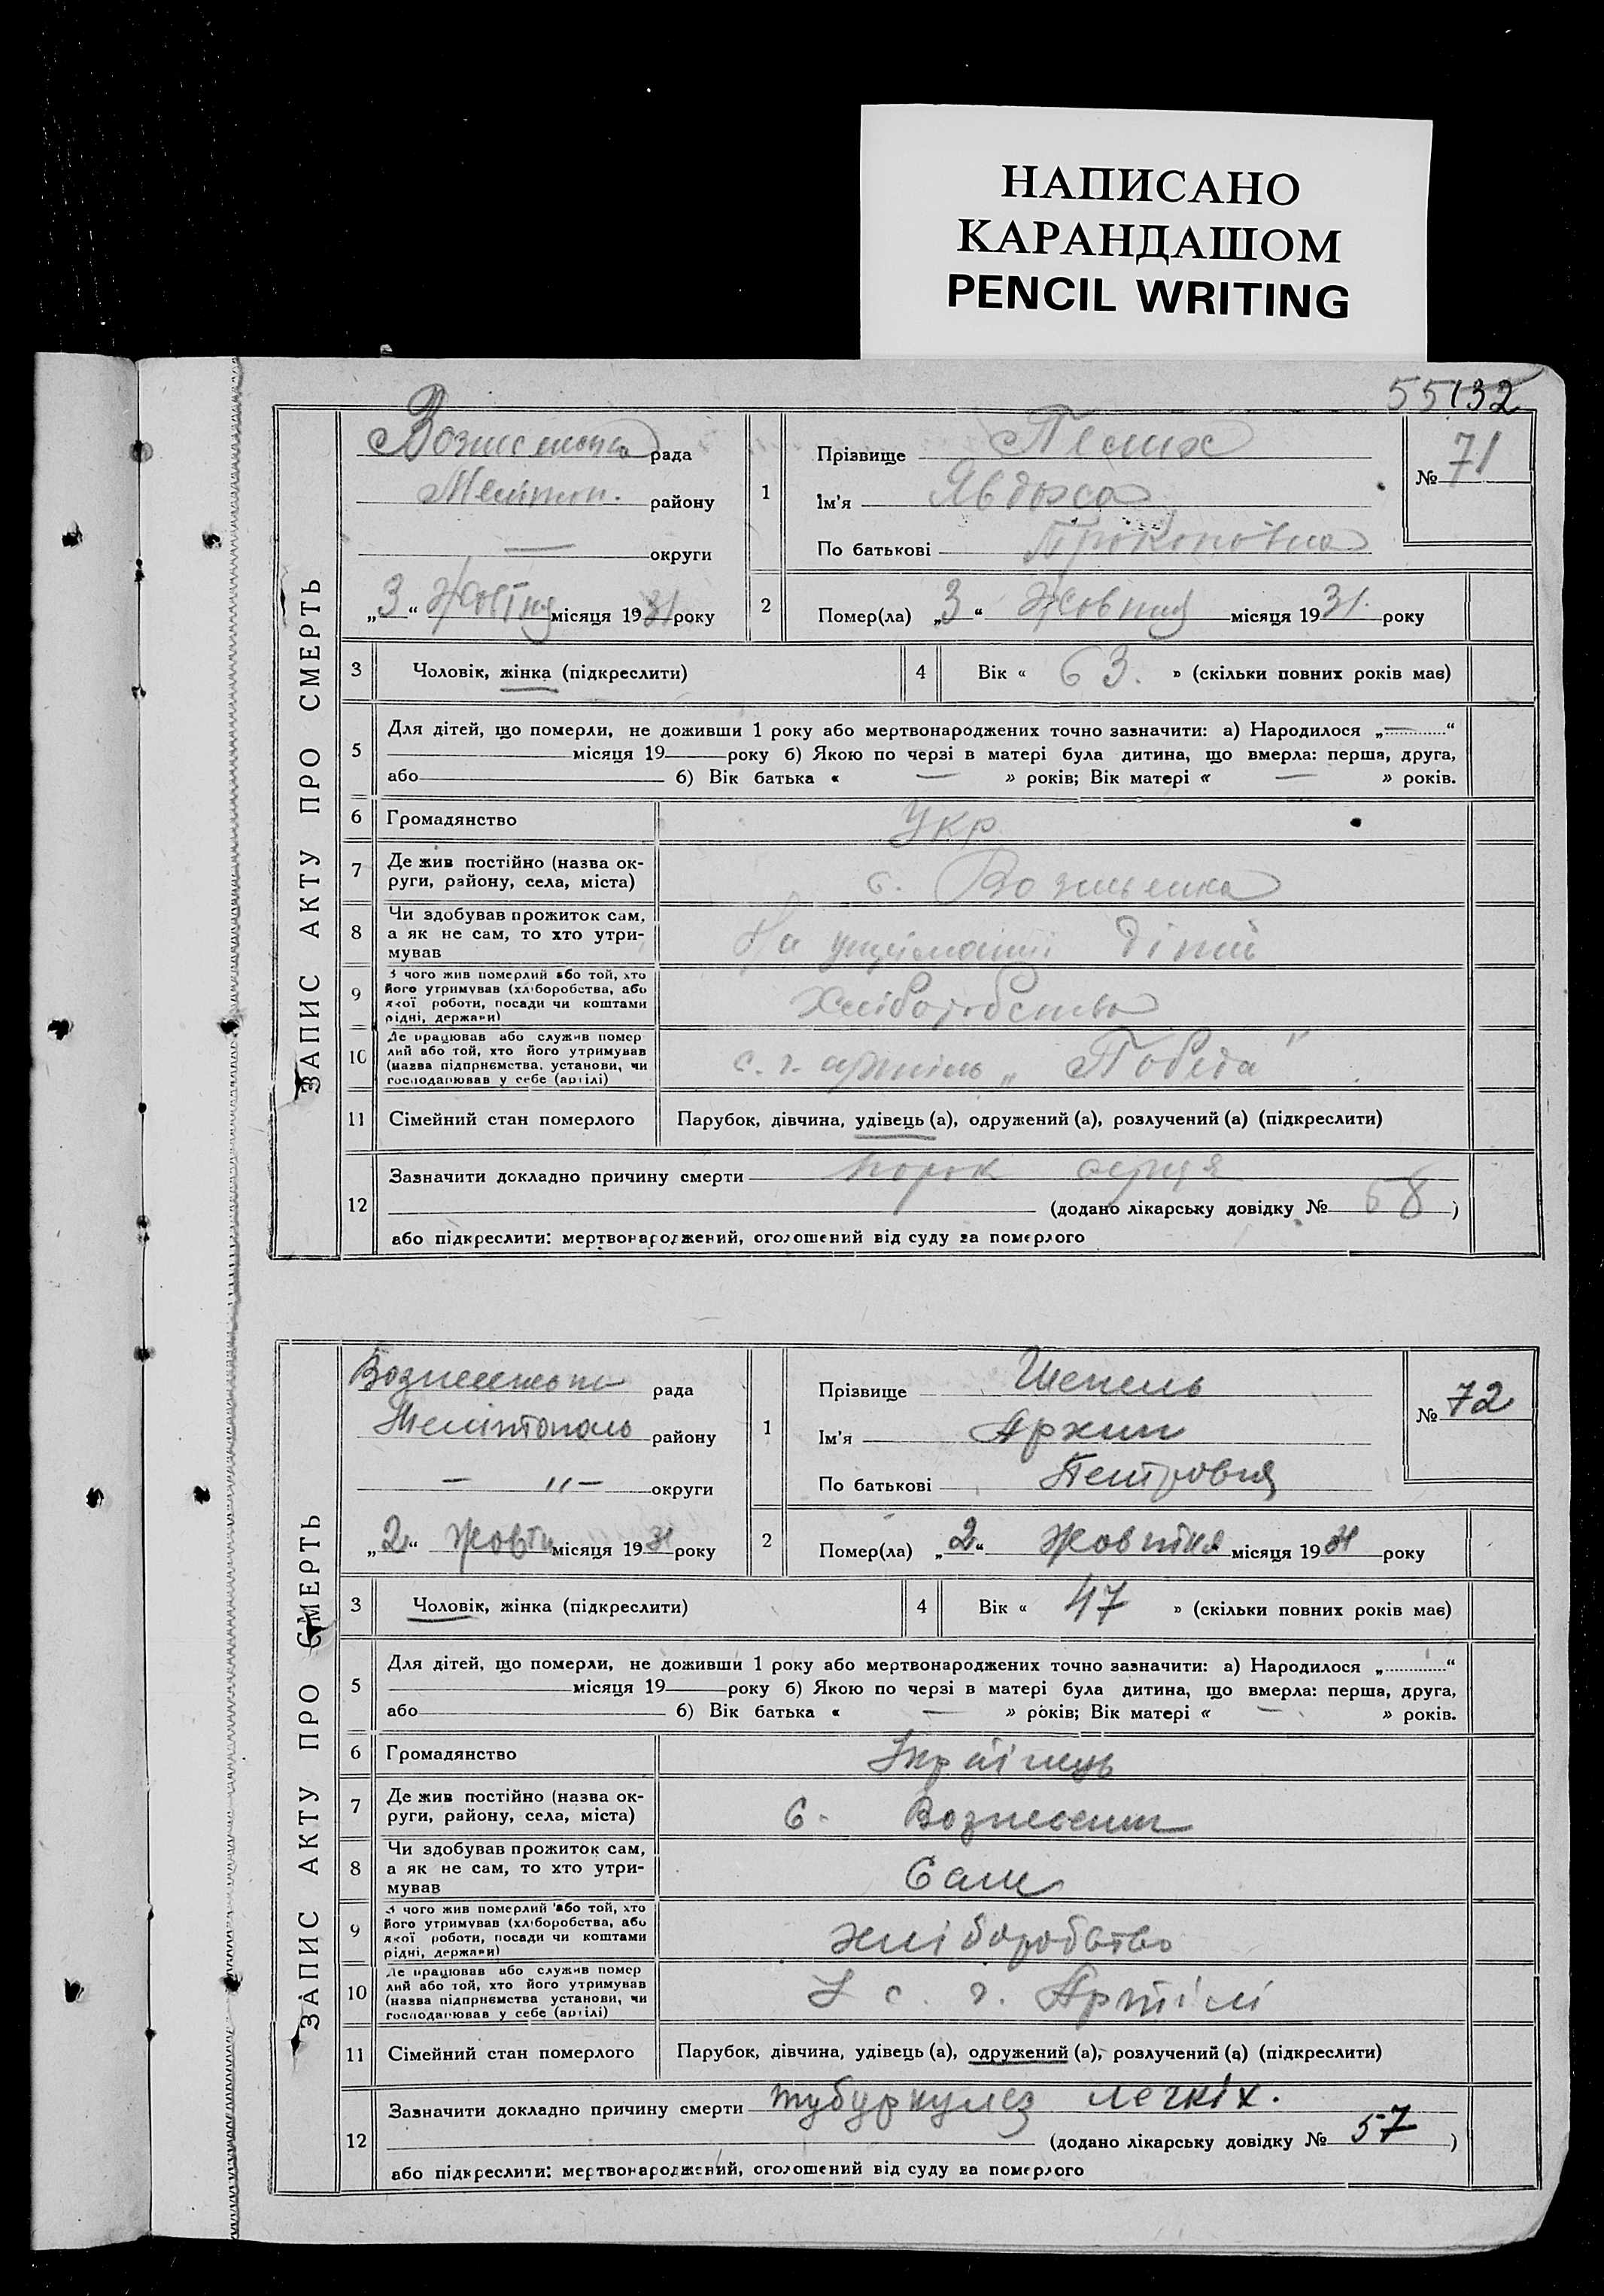 НАПИСАНО
КАРАНДАШОМ
PENCIL WRITING
55 132
ЗАПИС АКТУ ПРО СМЕРТЬ
рада
Меліт. району
— округи
„3“ Жовтня місяця 1931 року
1
Прізвище
Ім'я Явдоха
По батькові Прокопівна
№ 71
2
Помер(ла) „3“ Жовтня місяця 1931 року
3 Чоловік, жінка (підкреслити)
4 Вік « 63. » (скільки повних років має)
5 Для дітей, що померли, не доживши 1 року або мертвонароджених точно зазначити: а) Народилося „—“
місяця 19 року б) Якою по черзі в матері була дитина, що вмерла: перша, друга,
або б) Вік батька « — » років; Вік матері « — » років.
6 Громадянство Укр
7 Де жив постійно (назва ок-
руги, району, села, міста) с.
8 Чи здобував прожиток сам,
а як не сам, то хто утри-
мував На утриманні дітей
9 З чого жив померлий або той, хто
його утримував (хліборобства, або
якої роботи, посади чи коштами
рідні, держави) Хліборобство
10 Де працював або служив помер
лий або той, хто його утримував
(назва підприємства, установи, чи
господарював у себе (артілі) с. г. артіль „Победа“
11 Сімейний стан померлого Парубок, дівчина, удівець (а), одружений (а), розлучений (а) (підкреслити)
12 Зазначити докладно причину смерти порок серця
(додано лікарську довідку № 58)
або підкреслити: мертвонароджений, оголошений від суду за померлого
ЗАПИС АКТУ ПРО СМЕРТЬ
рада
Мелітополь району
— „ — округи
„2“ Жовтн місяця 1931 року
1
Прізвище Шепель
Ім'я Архип
По батькові Петровия
№ 72
2
Помер(ла) „2“ Жовтня місяця 1931 року
3 Чоловік, жінка (підкреслити)
4 Вік « 47 » (скільки повних років має)
5 Для дітей, що померли, не доживши 1 року або мертвонароджених точно зазначити: а) Народилося „ “
місяця 19 року б) Якою по черзі в матері була дитина, що вмерла: перша, друга,
або б) Вік батька « — » років; Вік матері « — » років.
6 Громадянство Українць
7 Де жив постійно (назва ок-
руги, району, села, міста) с.
8 Чи здобував прожиток сам,
а як не сам, то хто утри-
мував Сам
9 З чого жив померлий або той, хто
його утримував (хліборобства, або
якої роботи, посади чи коштами
рідні, держави) хліборобство
10 Де працював або служив помер
лий або той, хто його утримував
(назва підприємства установи, чи
господарював у себе (артілі) У с. г. Артілі
11 Сімейний стан померлого Парубок, дівчина, удівець (а), одружений (а), розлучений (а) (підкреслити)
12 Зазначити докладно причину смерти тубуркулез легкіх.
(додано лікарську довідку № 57)
або підкреслити: мертвонароджений, оголошений від суду за померлого